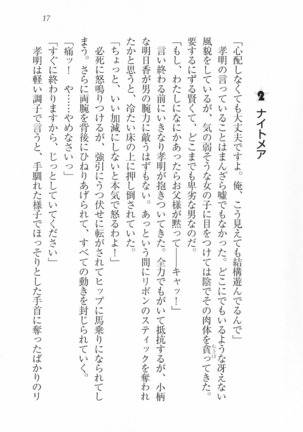 17
2 ナイトメア
「心配しなくても大丈夫ですよ。俺、こう見えても結構遊んでるんで」
孝明の言っていることはまんざら嘘でもなかった。どこにでもいるような冴えない
風貌をしているが、気の弱そうな女の子に目をつけては陰でその肉体を貪ってきた。
むさぼ
要するにずる賢くて、どこまでも卑劣な男なのだ。
「もし、わたしになにかあったらお父様が黙って――キャッ！」
言い終わる前にいきなり孝明が抱きついてきた。全力でもがいて抵抗するが、小柄
な明日香が男の腕力に敵うはずもない。あっという間にリボンのスティックを奪われ
たかと思うと、冷たい床の上に押し倒されていた。
「ちょっと、いい加減にしないと本気で怒るわよ！」
必死に怒鳴りつけるが、強引にうつ伏せに転がされてヒップに馬乗りになられてし
まう。さらに両腕を背後にひねりあげられて、すべての動きを封じられていく。
「痛ッ！　や……やめなさいっ」
「すぐに終わりますから、じっとしていてください」
孝明は軽い調子で言うと、手馴れた様子でほっそりとした手首に奪ったばかりのリ